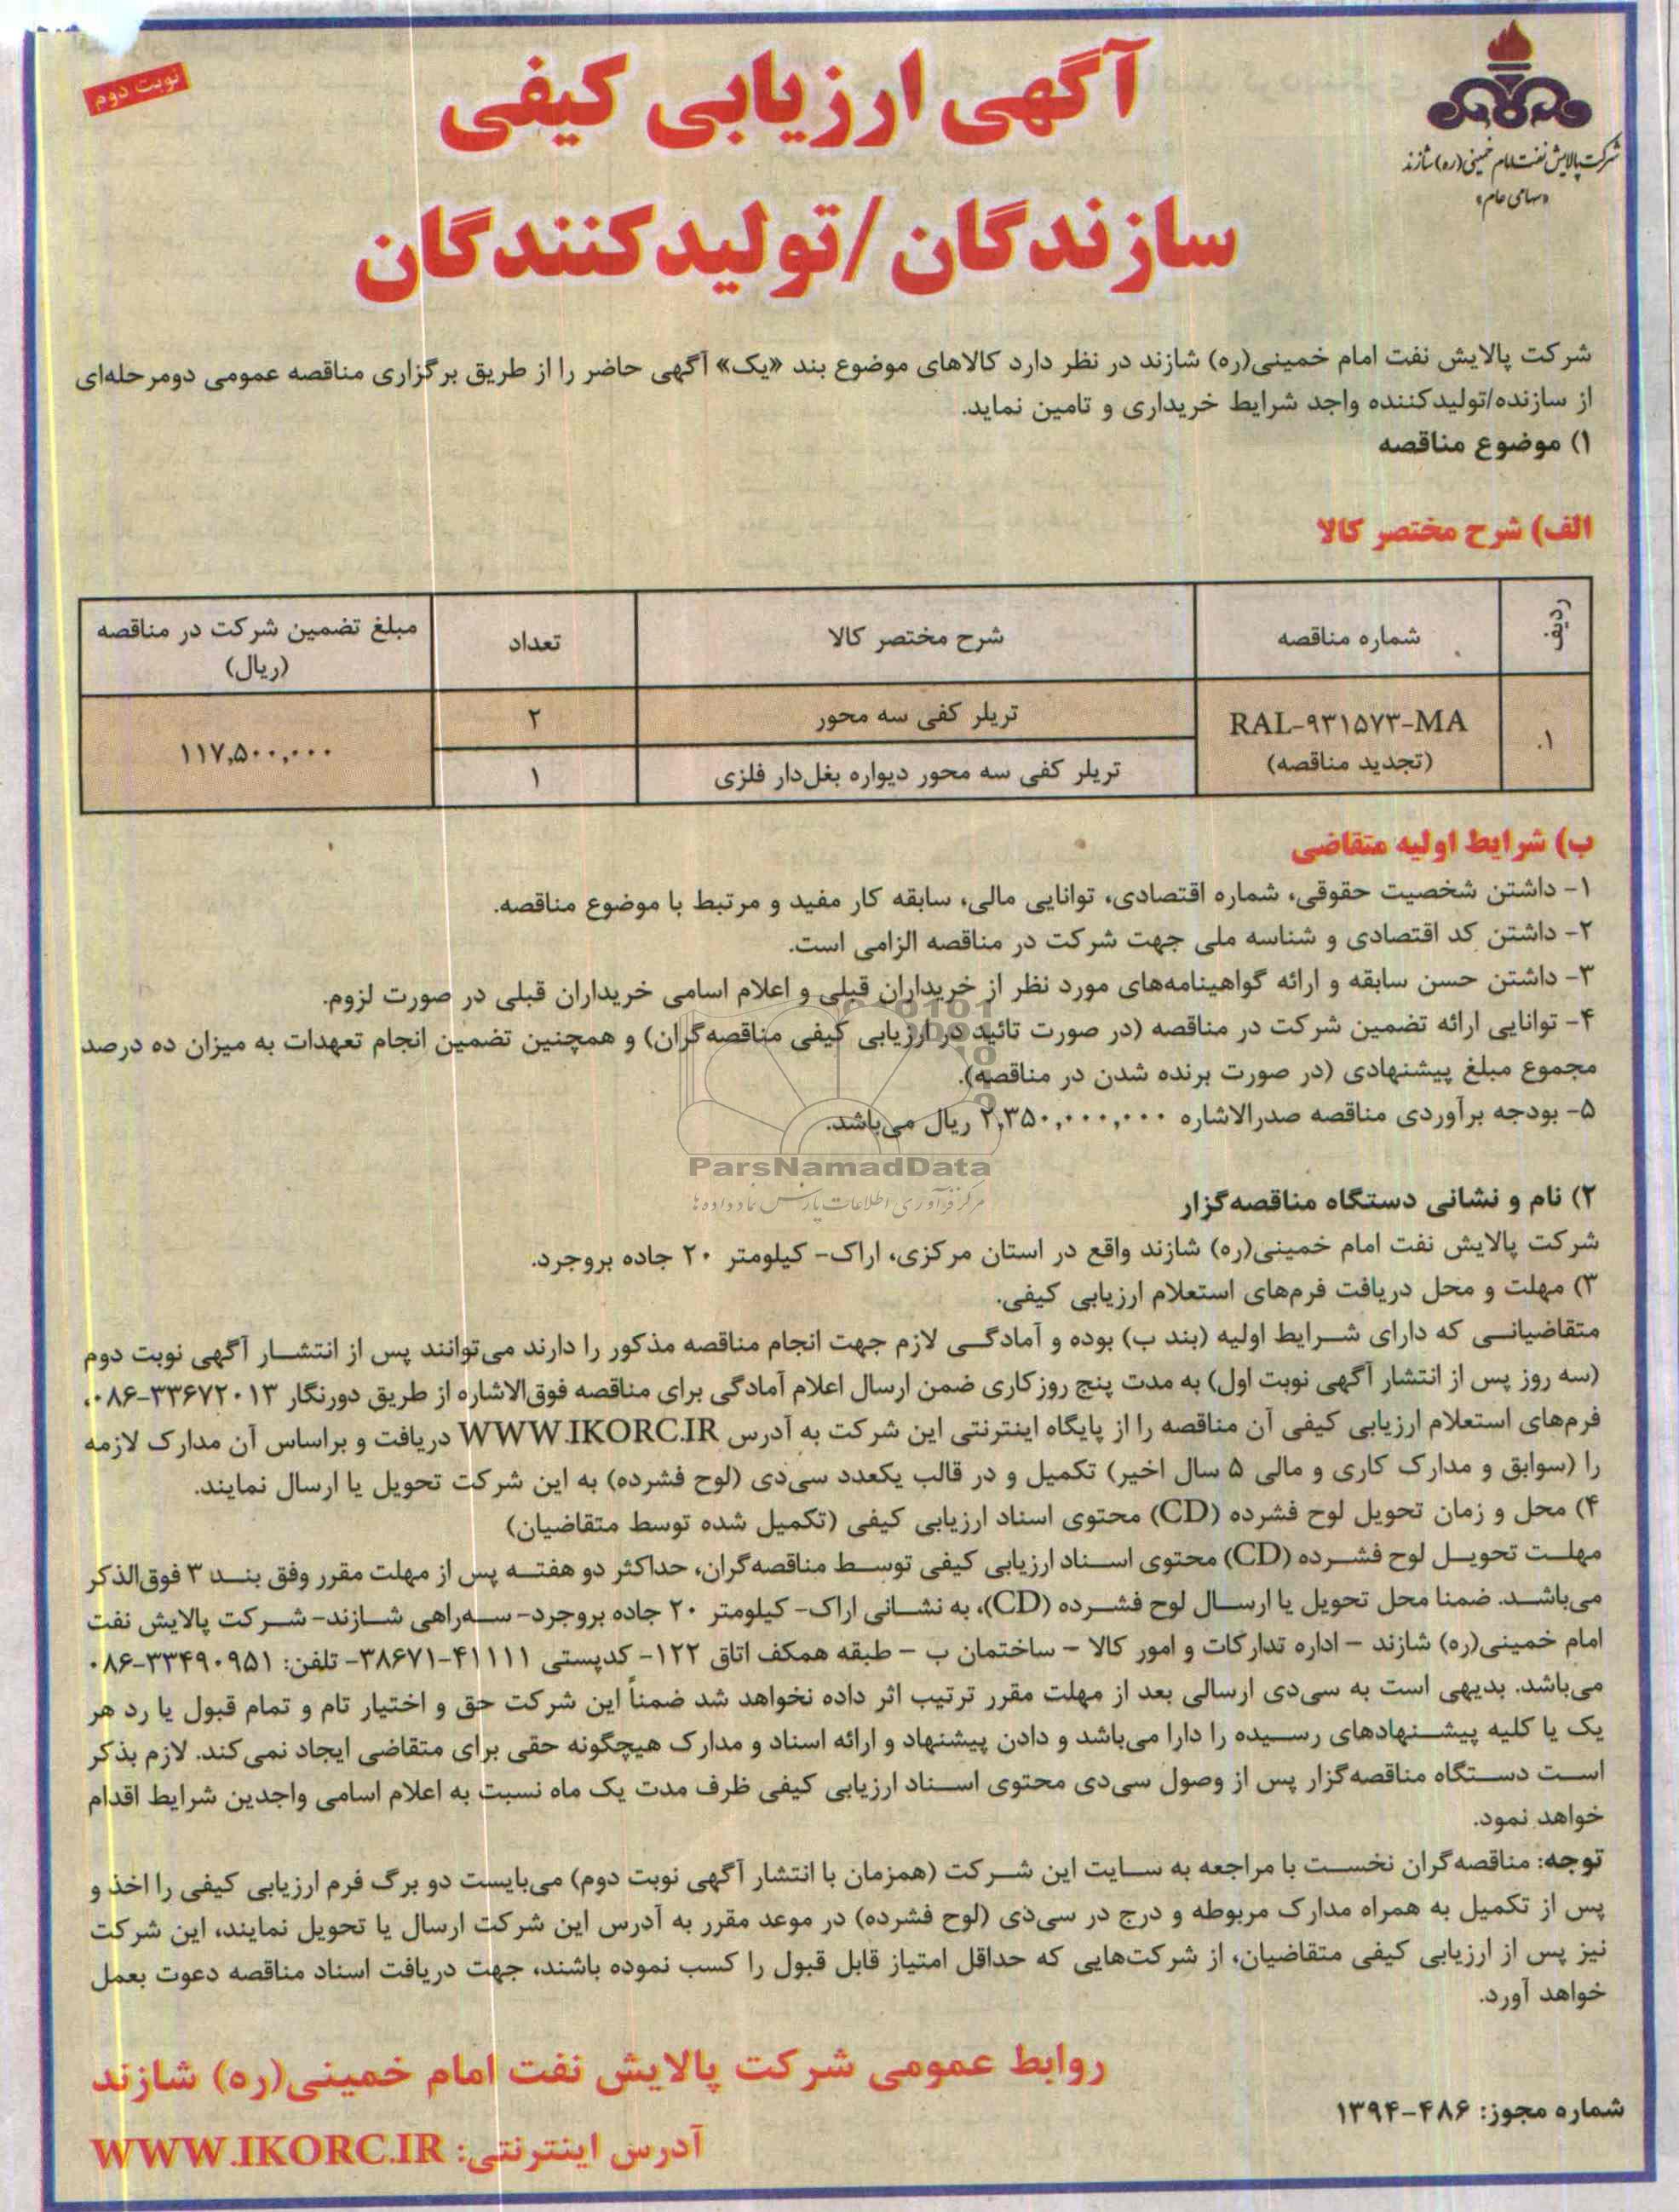 شرکت پالایش نفت امام خمینی(ره) شازند
«سهامی عام»
نوبت دوم
آگهی ارزیابی کیفی
سازندگان/تولیدکنندگان
شرکت پالایش نفت امام خمینی(ره) شازند در نظر دارد کالاهای موضوع بند «یک» آگهی حاضر را از طریق برگزاری مناقصه عمومی دومرحله‌ای
از سازنده/تولیدکننده واجد شرایط خریداری و تامین نماید.
۱) موضوع مناقصه
الف) شرح مختصر کالا
ردیف شماره مناقصه شرح مختصر کالا تعداد مبلغ تضمین شرکت در مناقصه
(ریال)
۱. RAL-۹۳۱۵۷۳-MA
(تجدید مناقصه)
تریلر کفی سه محور ۲
تریلر کفی سه محور دیواره بغل‌دار فلزی ۱
۱۱۷,۵۰۰,۰۰۰
ب) شرایط اولیه متقاضی
۱- داشتن شخصیت حقوقی، شماره اقتصادی، توانایی مالی، سابقه کار مفید و مرتبط با موضوع مناقصه.
۲- داشتن کد اقتصادی و شناسه ملی جهت شرکت در مناقصه الزامی است.
۳- داشتن حسن سابقه و ارائه گواهینامه‌های مورد نظر از خریداران قبلی و اعلام اسامی خریداران قبلی در صورت لزوم.
۴- توانایی ارائه تضمین شرکت در مناقصه (در صورت تائید در ارزیابی کیفی مناقصه‌گران) و همچنین تضمین انجام تعهدات به میزان ده درصد
مجموع مبلغ پیشنهادی (در صورت برنده شدن در مناقصه).
۵- بودجه برآوردی مناقصه صدرالاشاره ۲,۳۵۰,۰۰۰,۰۰۰ ریال می‌باشد.
ParsNamadData
مرکز فرآوری اطلاعات پارس نماد داده ها
۲) نام و نشانی دستگاه مناقصه‌گزار
شرکت پالایش نفت امام خمینی(ره) شازند واقع در استان مرکزی، اراک- کیلومتر ۲۰ جاده بروجرد.
۳) مهلت و محل دریافت فرم‌های استعلام ارزیابی کیفی.
متقاضیانی که دارای شرایط اولیه (بند ب) بوده و آمادگی لازم جهت انجام مناقصه مذکور را دارند می‌توانند پس از انتشار آگهی نوبت دوم
(سه روز پس از انتشار آگهی نوبت اول) به مدت پنج روزکاری ضمن ارسال اعلام آمادگی برای مناقصه فوق‌الاشاره از طریق دورنگار ۳۳۶۷۲۰۱۳-۰۸۶،
فرم‌های استعلام ارزیابی کیفی آن مناقصه را از پایگاه اینترنتی این شرکت به آدرس WWW.IKORC.IR دریافت و براساس آن مدارک لازمه
را (سوابق و مدارک کاری و مالی ۵ سال اخیر) تکمیل و در قالب یکعدد سی‌دی (لوح فشرده) به این شرکت تحویل یا ارسال نمایند.
۴) محل و زمان تحویل لوح فشرده (CD) محتوی اسناد ارزیابی کیفی (تکمیل شده توسط متقاضیان)
مهلت تحویل لوح فشرده (CD) محتوی اسناد ارزیابی کیفی توسط مناقصه‌گران، حداکثر دو هفته پس از مهلت مقرر وفق بند ۳ فوق‌الذکر
می‌باشد. ضمنا محل تحویل یا ارسال لوح فشرده (CD)، به نشانی اراک- کیلومتر ۲۰ جاده بروجرد- سه‌راهی شازند- شرکت پالایش نفت
امام خمینی(ره) شازند – اداره تدارکات و امور کالا – ساختمان ب – طبقه همکف اتاق ۱۲۲- کدپستی ۴۱۱۱۱-۳۸۶۷۱- تلفن: ۳۳۴۹۰۹۵۱-۰۸۶
می‌باشد. بدیهی است به سی‌دی ارسالی بعد از مهلت مقرر ترتیب اثر داده نخواهد شد ضمناً این شرکت حق و اختیار تام و تمام قبول یا رد هر
یک یا کلیه پیشنهادهای رسیده را دارا می‌باشد و دادن پیشنهاد و ارائه اسناد و مدارک هیچگونه حقی برای متقاضی ایجاد نمی‌کند. لازم بذکر
است دستگاه مناقصه‌گزار پس از وصول سی‌دی محتوی اسناد ارزیابی کیفی ظرف مدت یک ماه نسبت به اعلام اسامی واجدین شرایط اقدام
خواهد نمود.
توجه: مناقصه‌گران نخست با مراجعه به سایت این شرکت (همزمان با انتشار آگهی نوبت دوم) می‌بایست دو برگ فرم ارزیابی کیفی را اخذ و
پس از تکمیل به همراه مدارک مربوطه و درج در سی‌دی (لوح فشرده) در موعد مقرر به آدرس این شرکت ارسال یا تحویل نمایند، این شرکت
نیز پس از ارزیابی کیفی متقاضیان، از شرکت‌هایی که حداقل امتیاز قابل قبول را کسب نموده باشند، جهت دریافت اسناد مناقصه دعوت بعمل
خواهد آورد.
روابط عمومی شرکت پالایش نفت امام خمینی(ره) شازند
شماره مجوز: ۴۸۶-۱۳۹۴
آدرس اینترنتی: WWW.IKORC.IR